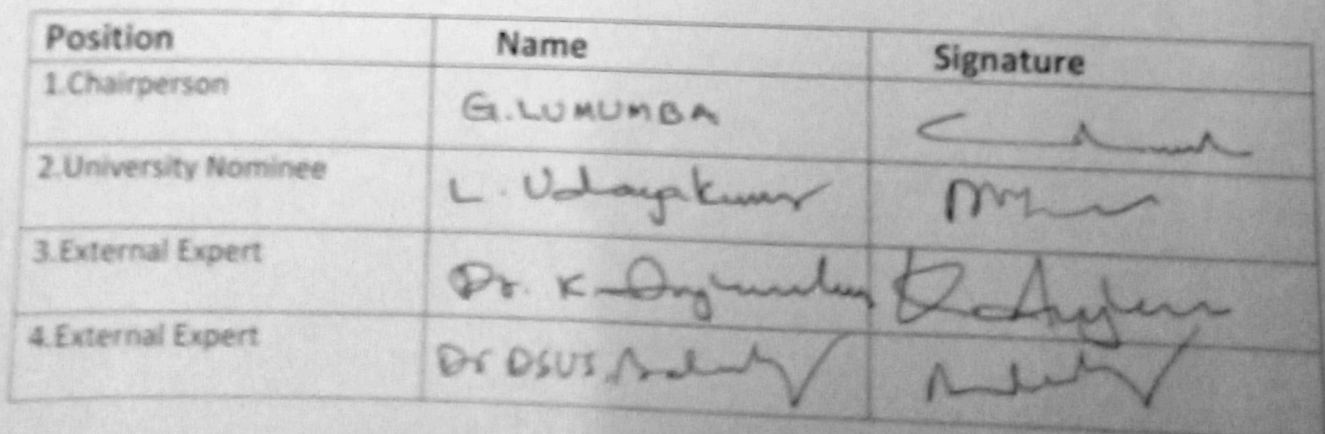 Position Name Signature
1.Chairperson G.LUMUMBA
2.University Nominee L. Udayakumar
3.External Expert Dr. K
4.External Expert Dr DSVS